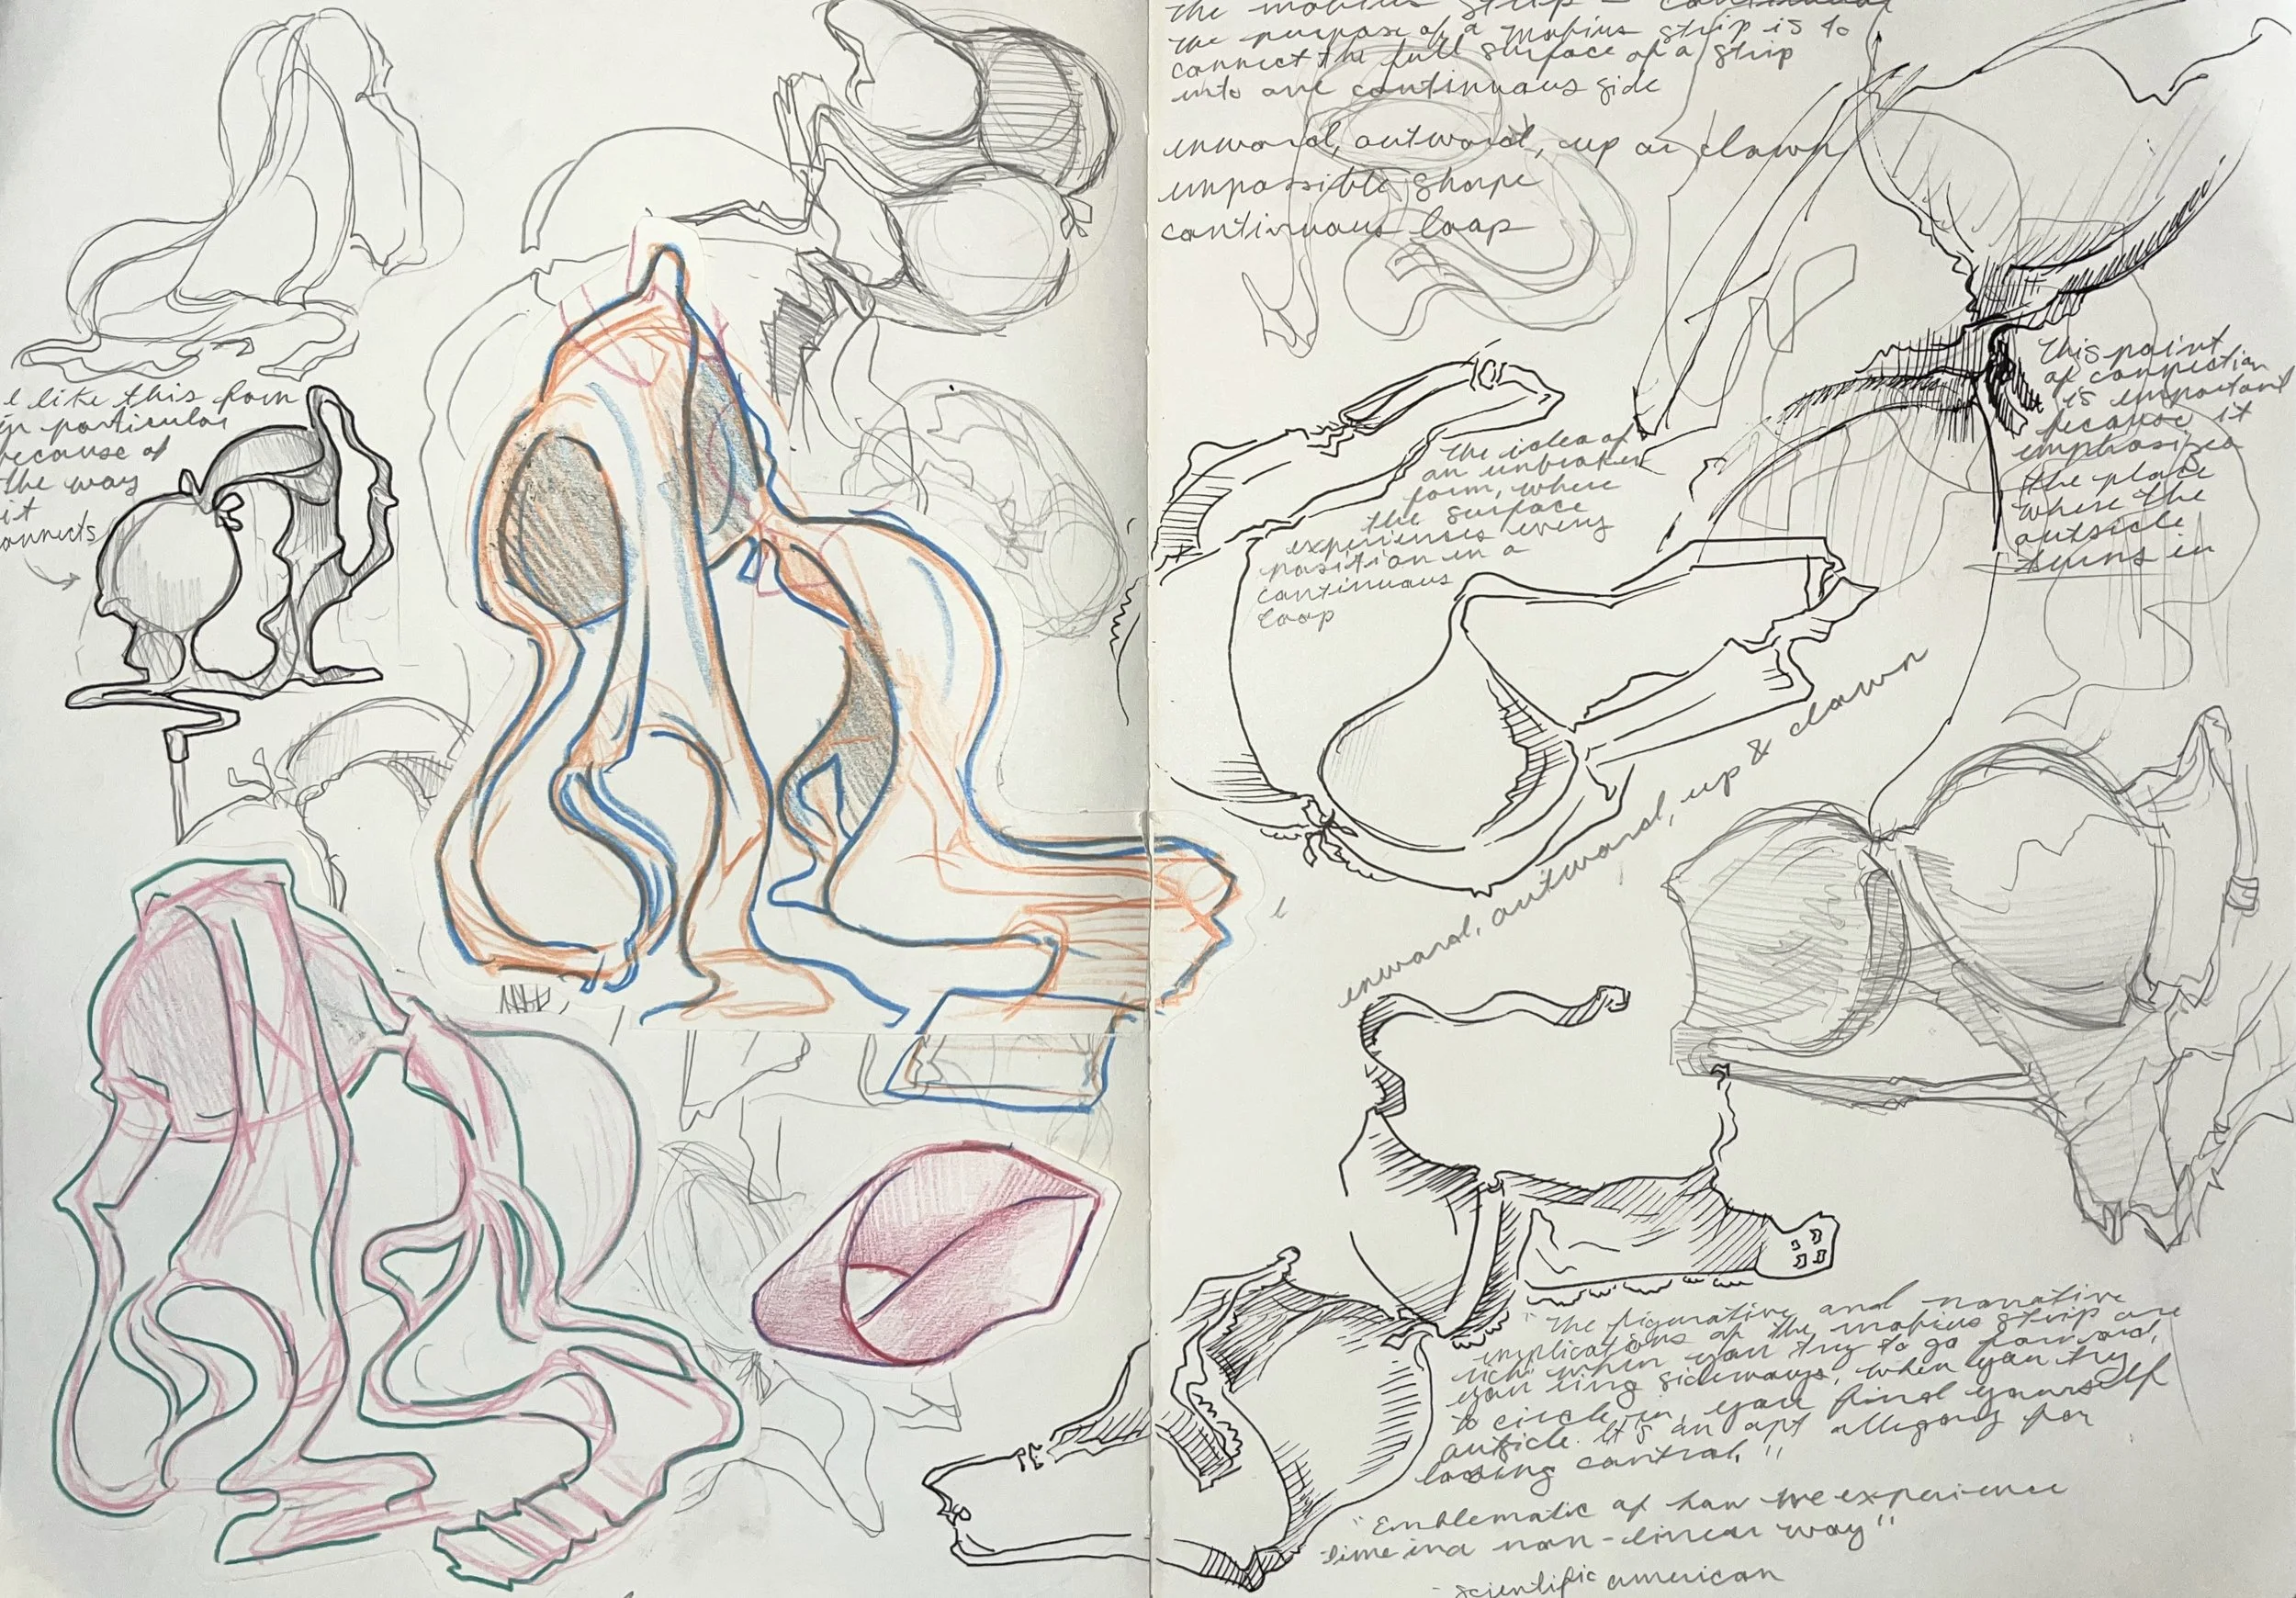 I like this form
in particular
because of
the way
it
connects
the mobius strip - continuous
the purpose of a mobius strip is to
connect the full surface of a strip
into one continuous side
inward, outward, up or down
impossible shape
continuous loop
This point
of connection
is important
because it
emphasizes
the place
where the
outside
turns in
the idea of
an unbroken
form, where
the surface
experiences every
position in a
continuous
loop
inward, outward, up & down
"The figurative and narrative
implications of the mobius strip are
rich: when you try to go forward,
you sideways, when you try
to circle in, you find yourself
outside. It's an apt allegory for
loosing control."
"Emblematic of how we experience
time in a non-linear way"
- scientific american